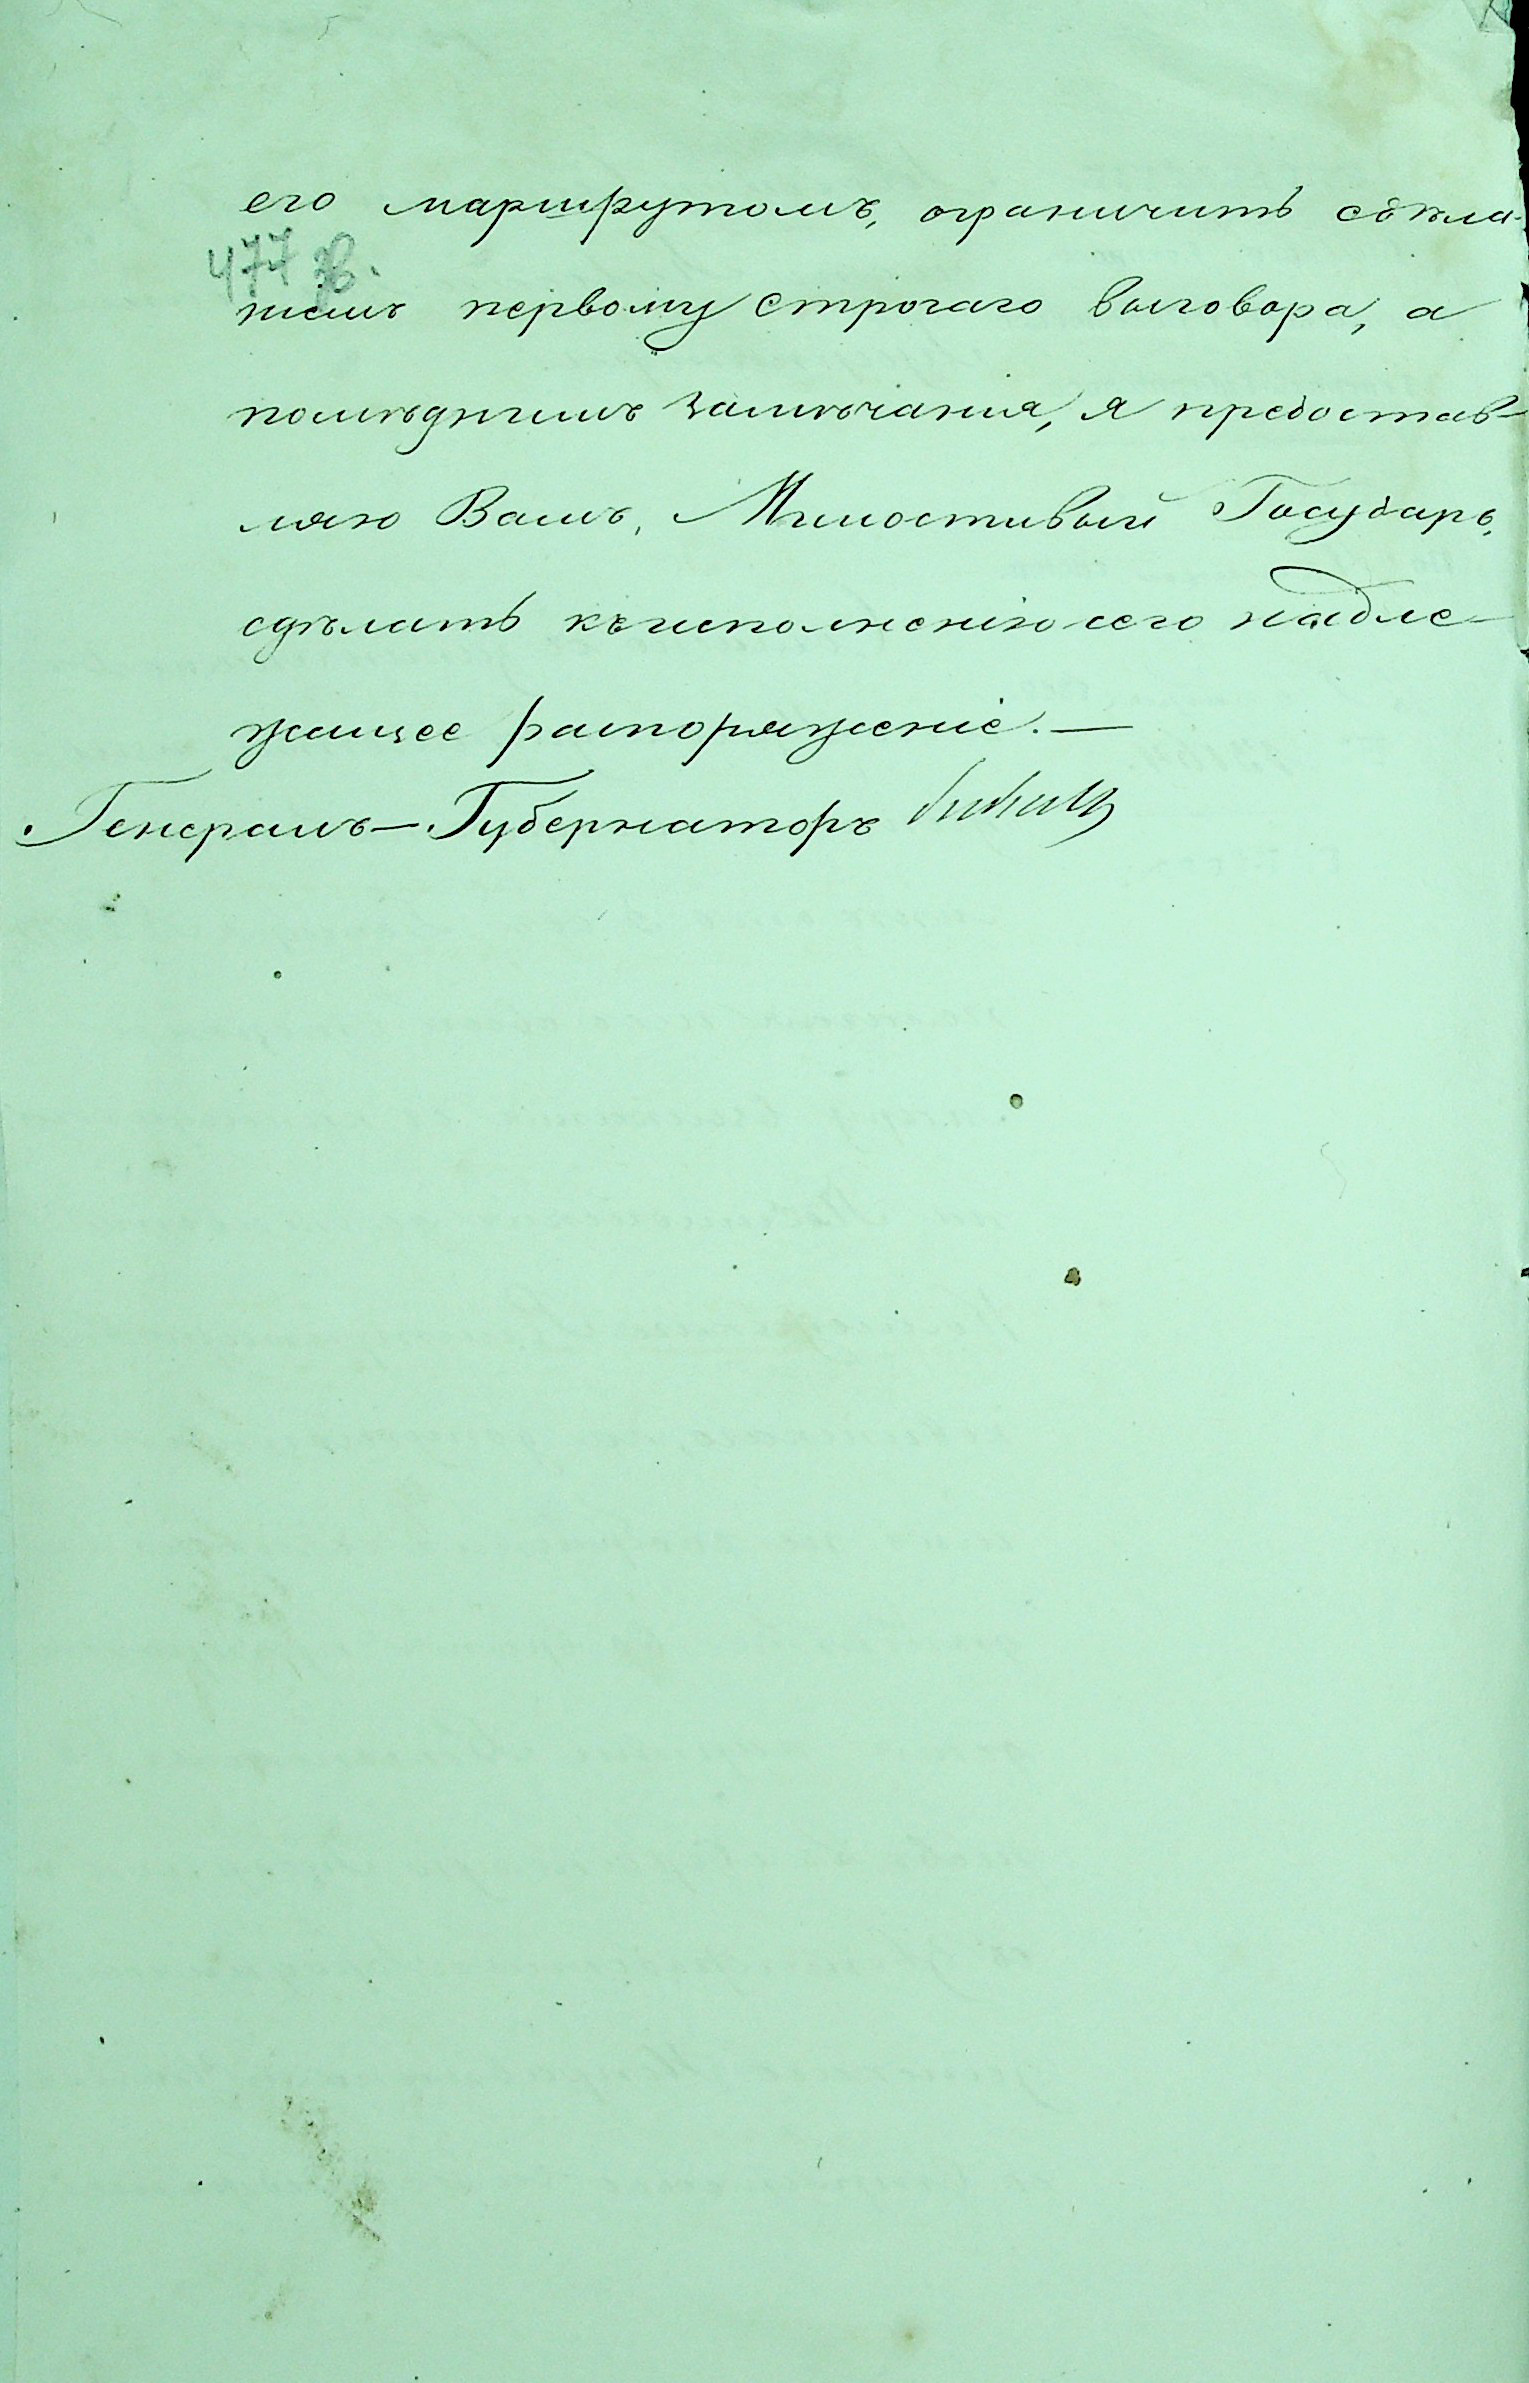 его маршрутомъ, ограничить сдѣла-
477 зв.
ніемъ первому строгаго выговора, а
послѣднимъ замѣчанія, я предостав-
ляю Вамъ, Милостивый Государь,
сдѣлать къ исполненію сего надле-
жащее распоряженіе. —
Генералъ-Губернаторъ